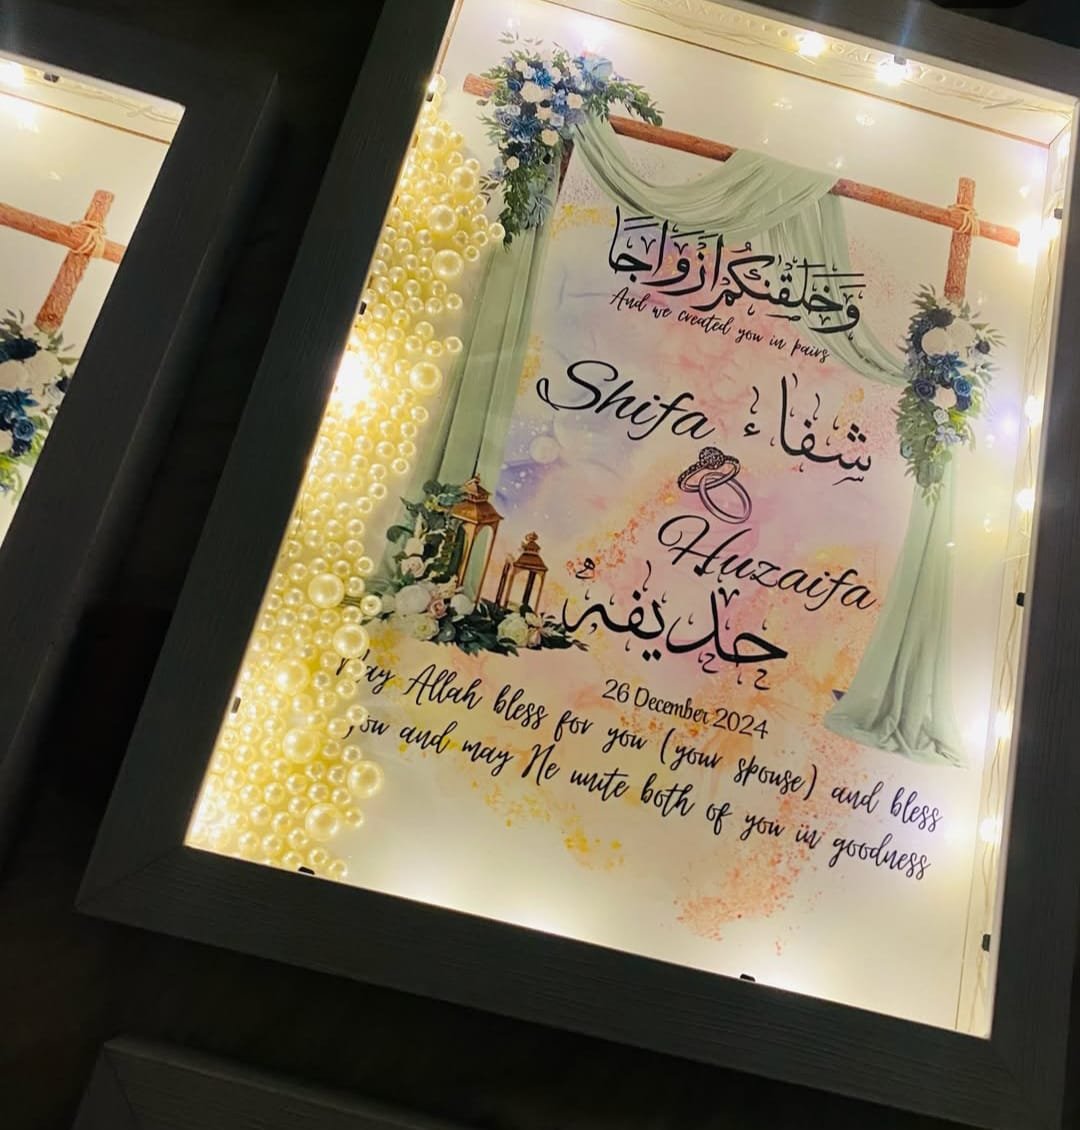 وَخَلَقْنٰكُمْ اَزْوَاجًا
And we created you in pairs
Shifa شفاء
Huzaifa
حذيفہ
26 December 2024
May Allah bless for you (your spouse) and bless
you and may He unite both of you in goodness